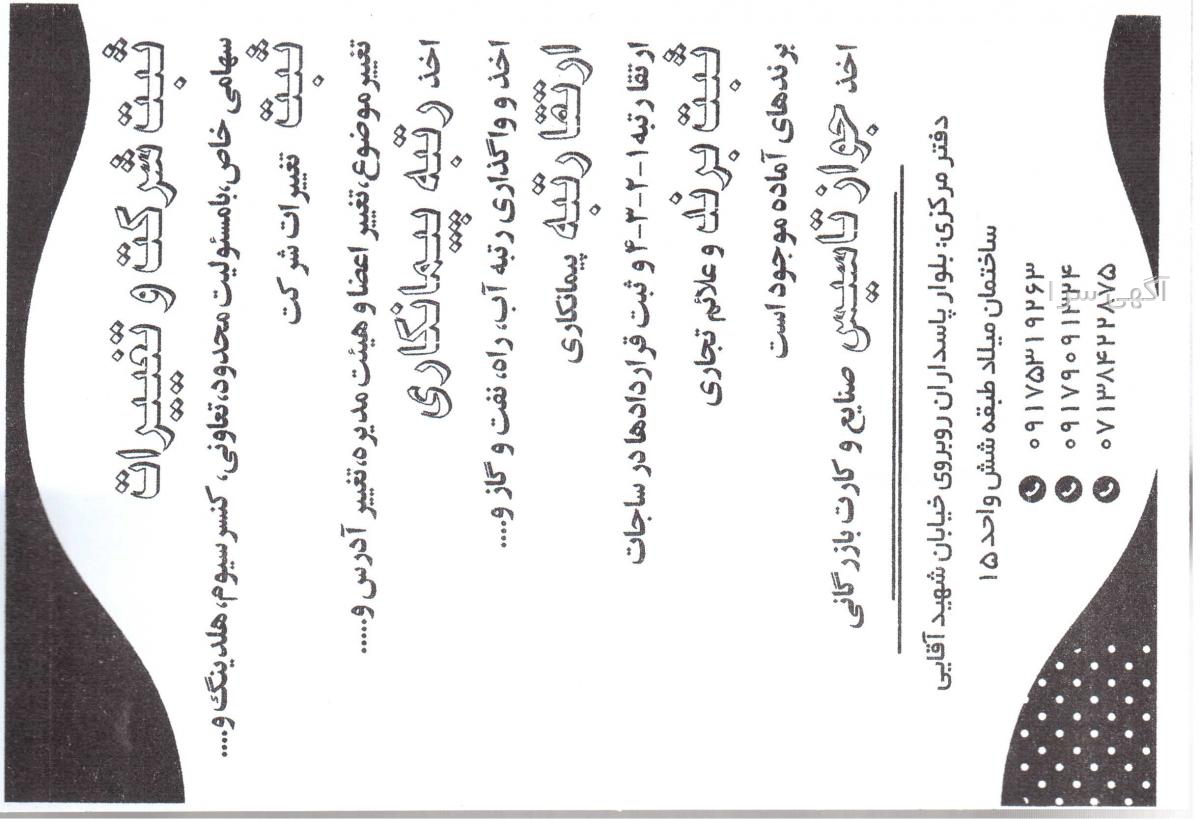 ثبت شرکت و تغییرات
سهامی خاص، بامسئولیت محدود، تعاونی، کنسرسیوم، هلدینگ و....
ثبت تغییرات شرکت
تغییر موضوع، تغییر اعضا و هیئت مدیره، تغییر آدرس و.....
اخذ رتبه پیمانکاری
اخذ و واگذاری رتبه آب، راه، نفت و گاز و....
ارتقا رتبه پیمانکاری
ارتقا رتبه ۱-۲-۳-۴ و ثبت قراردادها در ساجات
ثبت برند و علائم تجاری
برندهای آماده موجود است
اخذ جواز تاسیس صنایع و کارت بازرگانی
دفتر مرکزی: بلوار پاسداران روبروی خیابان شهید آقایی
ساختمان میلاد طبقه شش واحد ۱۵
۰۹۱۷۵۳۱۹۲۶۳
۰۷۱۳۸۴۲۲۸۷۵
آگهی سرا